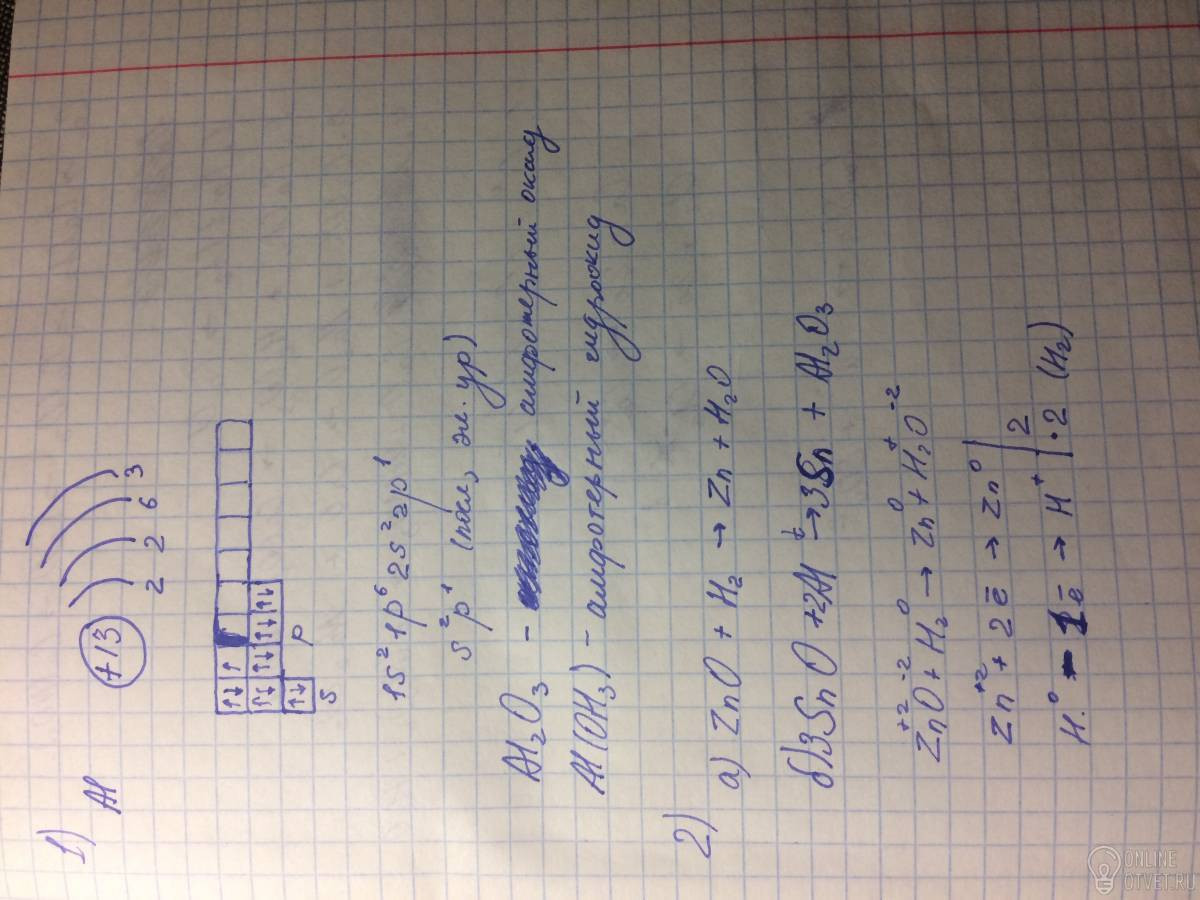 1) Al +13 2 2 6 3
↑↓ ↑
↑↓ ↑↓ ↑↓ ↑↓
↑↓
s p
1s² 1p⁶ 2s² 2p¹
s²p¹ (посл, эл. ур)
Al₂O₃ - амфотерный оксид
Al(OH₃) - амфотерный гидроокид
2)
а) ZnO + H₂ → Zn + H₂O
б) 3SnO + 2Al t→ 3Sn + Al₂O₃
Zn⁺²O⁻² + H₂⁰ → Zn⁰ + H₂⁺O⁻²
Zn⁺² + 2ē → Zn⁰ | 2
H.⁰ - 1ē → H⁺ | ·2 (H₂)
ONLINE
OTVET.RU